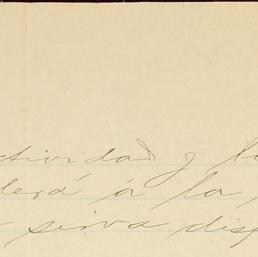 ctividad y b
derá á la
sirva disp